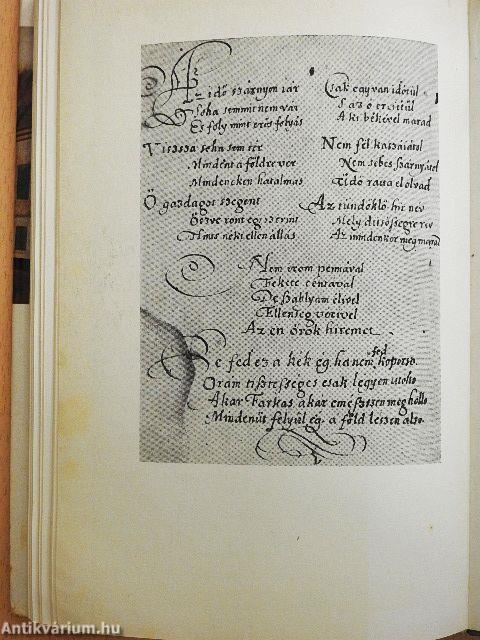 Az idő szárnyon iár
Soha semmit nem vár
Es foly mint erös folyás
Vissza soha sem tér
Mindent a földre ver
Mindeneken hatalmas
Ö gazdagot szegent
Öszve ront egy szerint
Nincs neki ellen állás
Csak egy van idötül
S az ö ereitül
A ki békével marad
Nem fél kaszáiátol
Nem sebes szarnyátol
Üdö rava el olvad
Az tündöklö hir nev
Mely
Az mindenkor meg marad
Nem irom pennával
Fekete téntával
De szablyám élivel
Ellenseg verivel
Az en örök hiremet
Be fed ez a kék eg, ha nem fed koporso
Orám tisztesseges csak legyen utolso
Akar Farkas, akar emeszszen meg hollo
Mindenüt felyül eg, a föld leszen also.
Antikvárium.hu